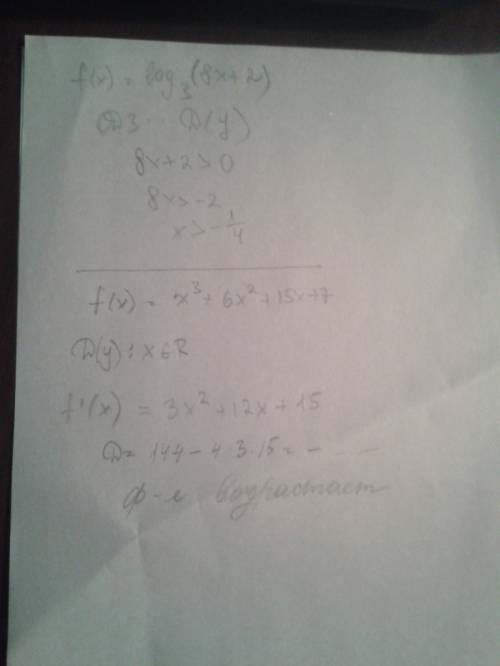 f(x) = log₃(8x+2)
ОДЗ: D(y)
8x+2>0
8x>-2
x>-1/4
f(x) = x³+6x²+15x+7
D(y): x∈R
f'(x) = 3x²+12x+15
D= 144-4·3·15= - . . .
ф-я возрастает